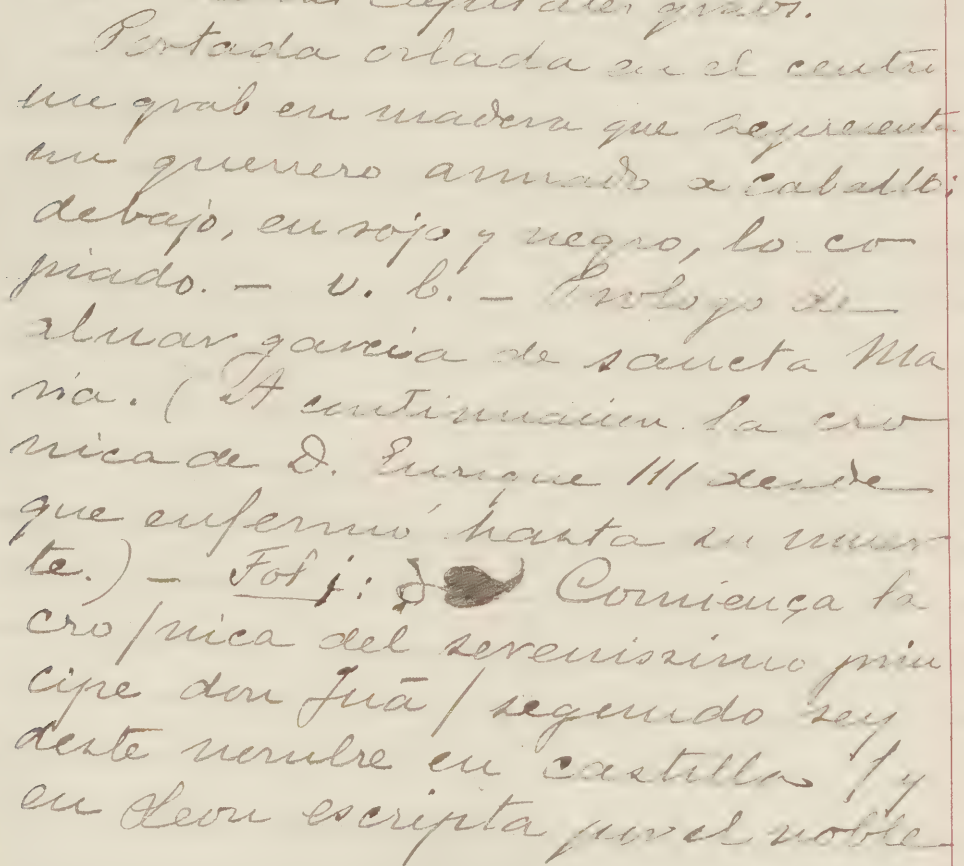 capitales grabs.
Portada orlada en el centro
un grab en madera que representa
un guerrero armado a caballo:
debajo, en rojo y negro, lo co
piado. - v. b. - Prologo de
aluar garcia de sancta Ma
ria. (A continuacion la cro
nica de D. Enrique III desde
que enfermó hasta su muer
te.) - Fol j: Comiença la
cro/nica del serenissimo prin
cipe don Juā / segundo rey
deste nombre en castilla / y
en Leon escripta por el noble